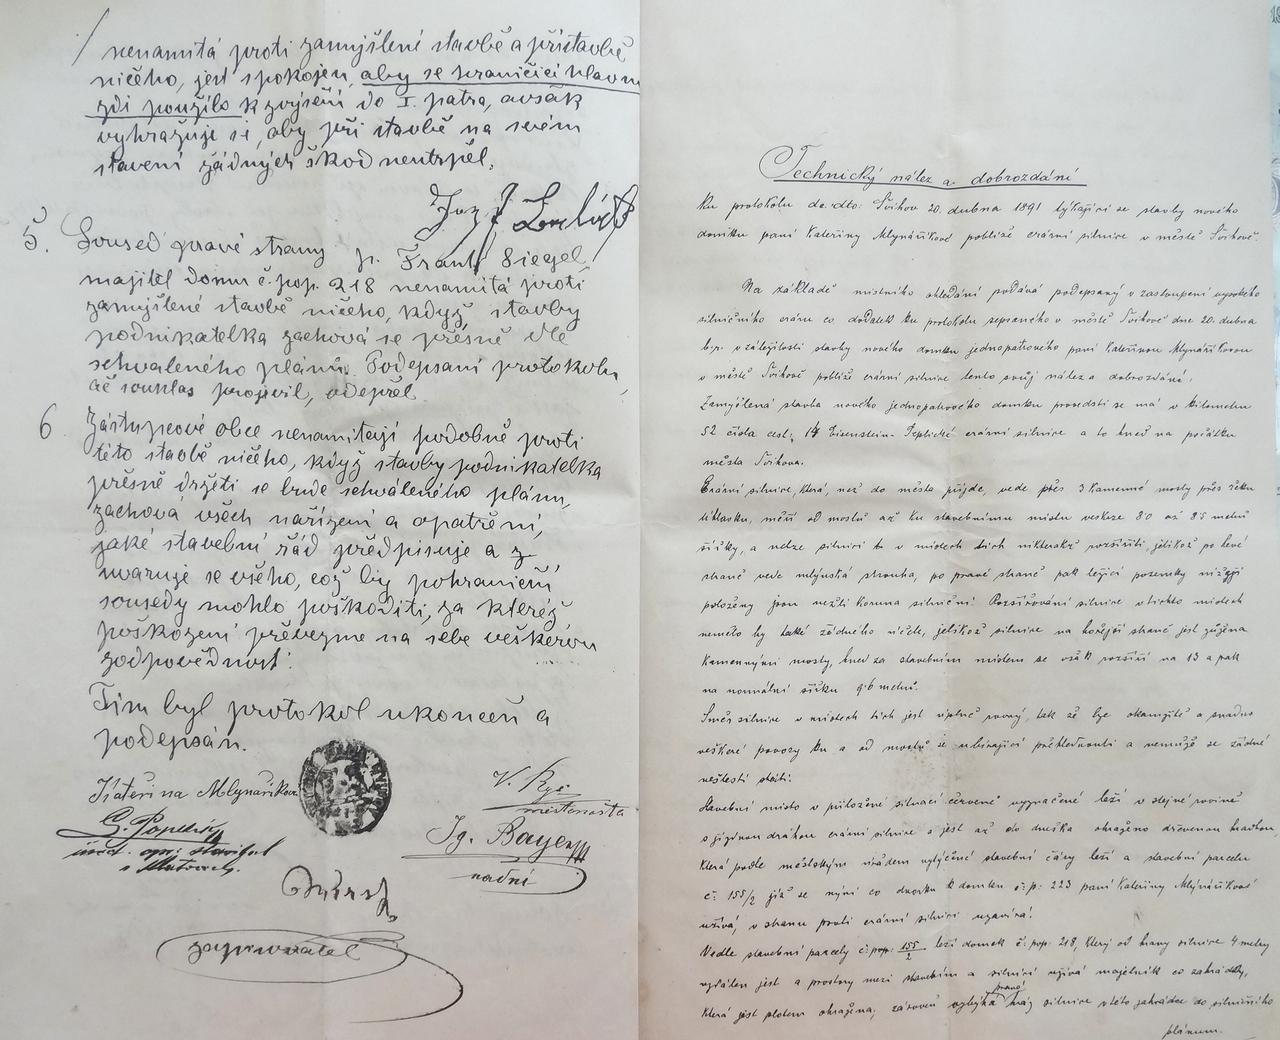 nenamitá proti zamýšlené stavbě a přístavbě
ničeho, jest spokojen, aby se hraničící hlavní
zdi použilo k zvýšení do I. patra, avšak
vyhražuje si, aby při stavbě na svém
stavení žádných škod neutrpěl.
5. Soused pravé strany p. Frant. Siegel,
majitel domu č. pop. 218 nenamitá proti
zamýšlené stavbě ničeho, když stavby
podnikatelka zachová se přesně dle
schvaleného plánu. Podepsaní protokolu,
ač souhlas projevil, odepřel.
6 Zástupcové obce nenamitají podobně proti
této stavbě ničeho, když stavby podnikatelka
přesně držeti se bude schváleného plánu,
zachová všech nařízení a opatření,
jaké stavební řád předpisuje a z-
uvaruje se všeho, což by pohraniční
sousedy mohlo poškoditi, za kteréž
poškození převezme na sebe veškerou
zodpovědnost.
Tím byl protokol ukončen a
podepsán.
Kateřina Mlynaříkova
V. Ryš
místostarosta
Ig. Bayer
radní
zapisovatel
Technický nález a dobrozdání
ku protokolu de dto: Švihov 20. dubna 1891 týkající se stavby nového
domku paní Kateřiny Mlynáříkové poblíže erární silnice v městě Švihově.
Na základě místního ohledání podává podepsaný v zastoupení vysokého
silničního eráru co dodatek ku protokolu sepsaného v městě Švihově dne 20. dubna
b.r. v záležitosti stavby nového domku jednopatrového paní Kateřinou Mlynáříkovou
v městě Švihově poblíže erární silnice tento svůj nález a dobrozdání.
Zamýšlená stavba nového jednopatrového domku provedsti se má v kilometru
52 čísla cest. 14 Eisenstein-Teplické erární silnice a to hned na počátku
města Švihova.
Erární silnice, která, než do města přijde, vede přes 3 kamenné mosty přes řeku
Uhlavku, měří od mostů až ku stavebnímu místu veskrze 8·0 až 8·5 metrů
šířky, a nelze silnici tu v místech těch nikterakž rozšířiti, jelikož po levé
straně vede mlýnská strouha, po pravé straně pak ležící pozemky nížeji
položeny jsou nežli koruna silniční. Rozšiřování silnice v těchto místech
nemělo by také žádného účele, jelikož silnice na hořejší straně jest zúžena
kamennými mosty, hned za stavebním místem se však rozšíří na 13 a pak
na normální šířku 9·6 metrů.
Směr silnice v místech těch jest úplně rovný, tak že lze okamžitě a snadno
veškeré povozy ku a od mostů se ubírající přehlednouti a nemůže se žádné
neštěstí státi.
Stavební místo v přiložené situaci červeně vyznačené leží v stejné rovině
s jízdnou dráhou erární silnice a jest až do dneška ohraženo dřevenou hradbou,
která podle městským úřadem vytýčené stavební čáry leží a stavební parcelu
č: 155/2 již se nyní co dvorku k domku č: p: 223 paní Kateřiny Mlynáříkové
užívá, v stranu proti erární silnici uzavírá.
Vedle stavební parcely č: pop: 155/2 leží domek č: pop: 218, který od hrany silnice 4 metry
vzdálen jest a prostory mezi stavením a silnicí užívá majetník co zahrádky,
která jest plotem ohražena, zároveň vybíhá pravá hráz silnice v této zahrádce do silničního
plánum.